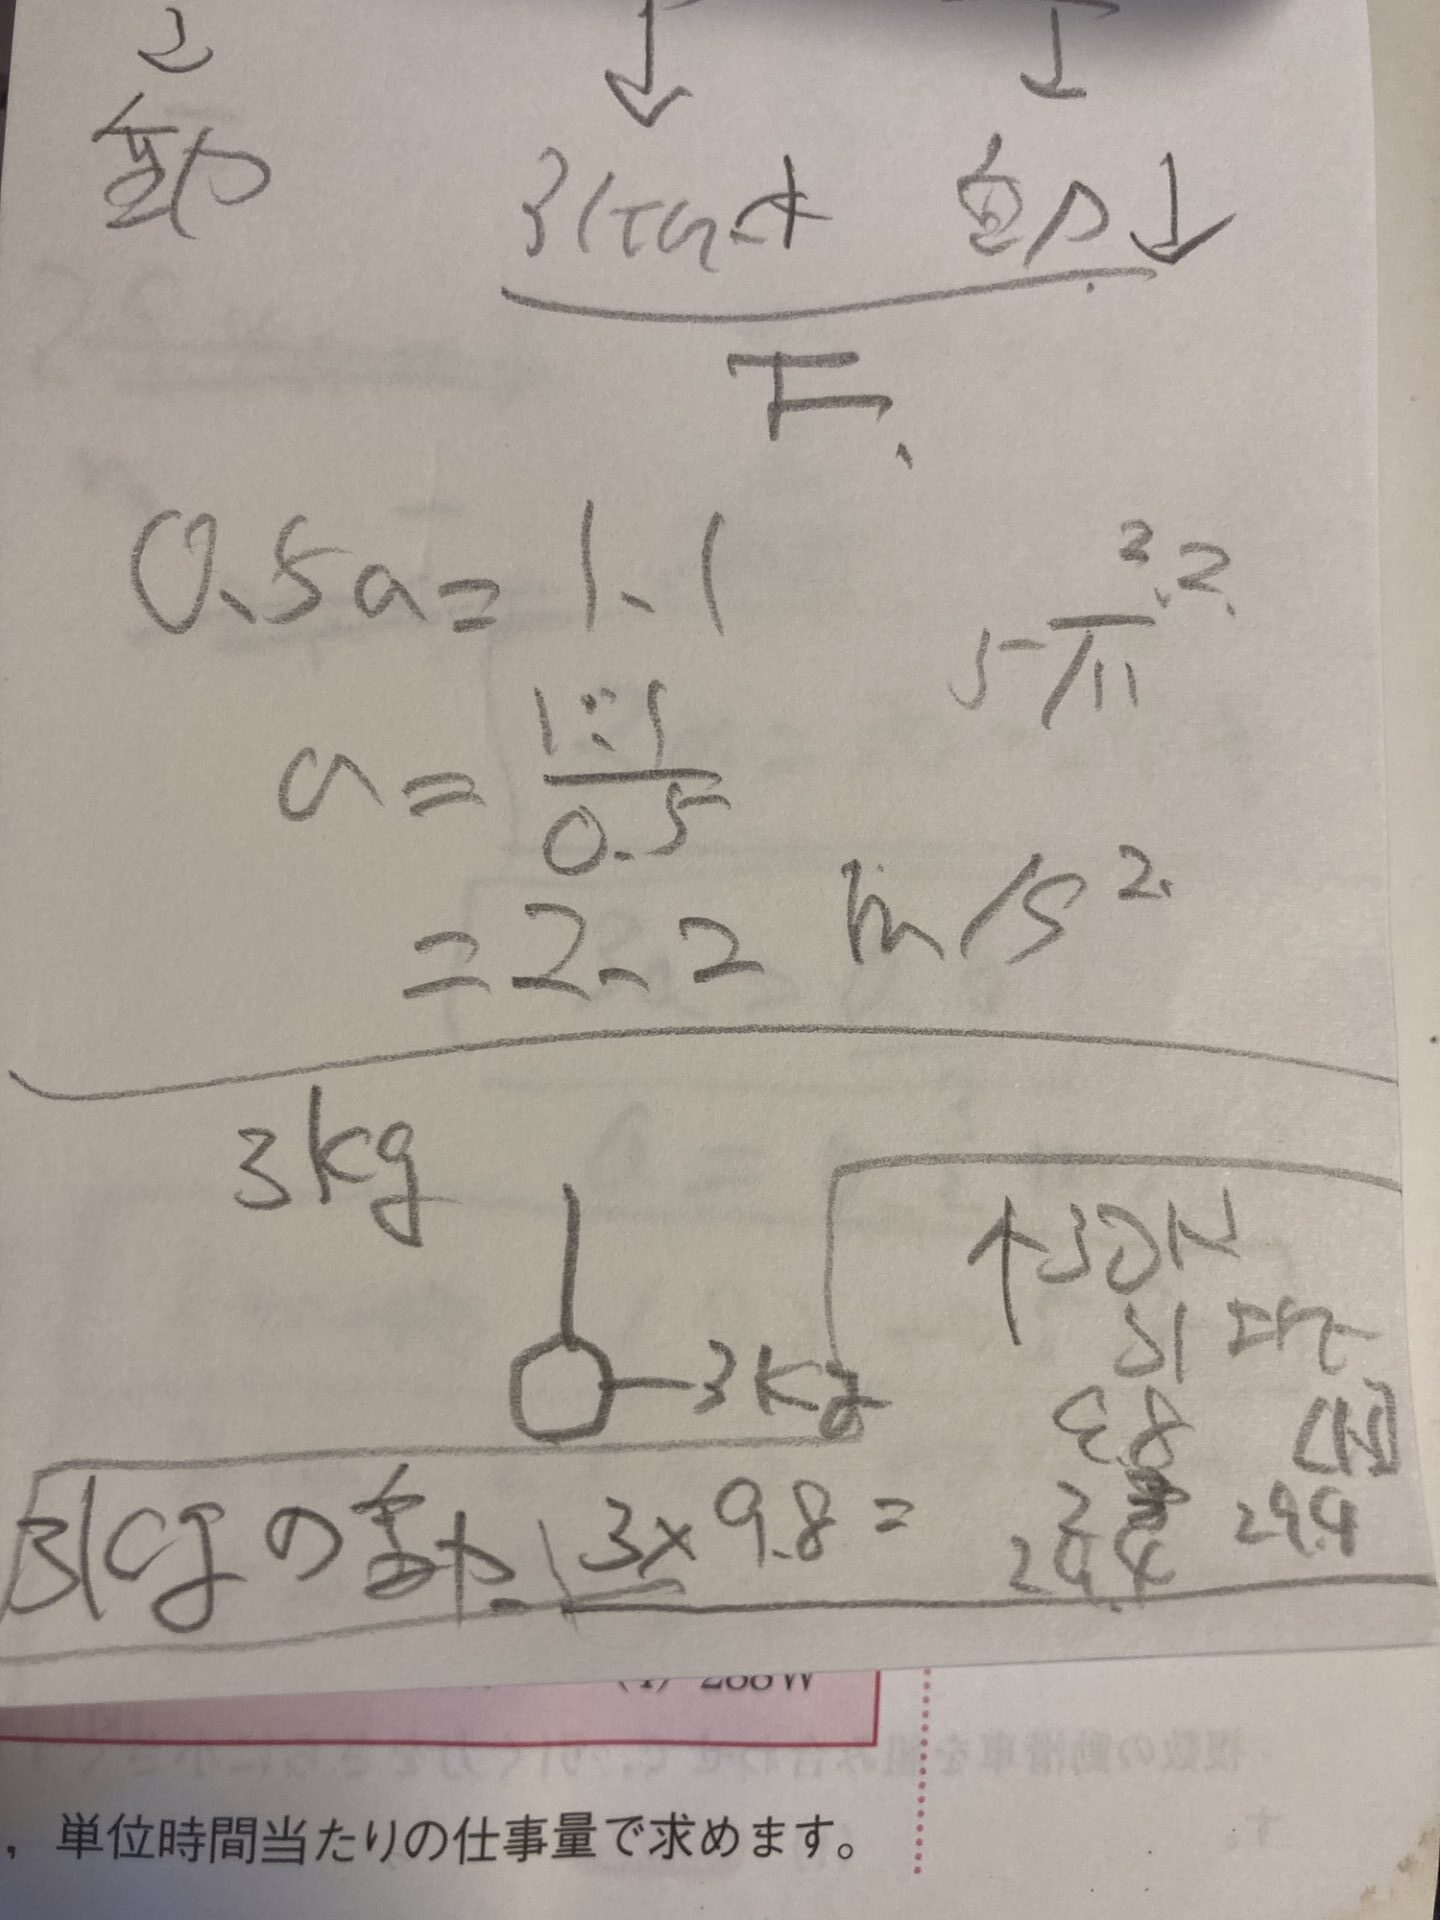 重力
引はなす 重力↓
F.
0.5a = 1.1
2.2.
5/11
a = 1.1/0.5
= 2.2 m/s²
3kg
↑30N
引上げて
3kg
9.8 [N]
3kgの重力 3×9.8 =
3
29.4 29.4
(4) 288W
，単位時間当たりの仕事量で求めます。